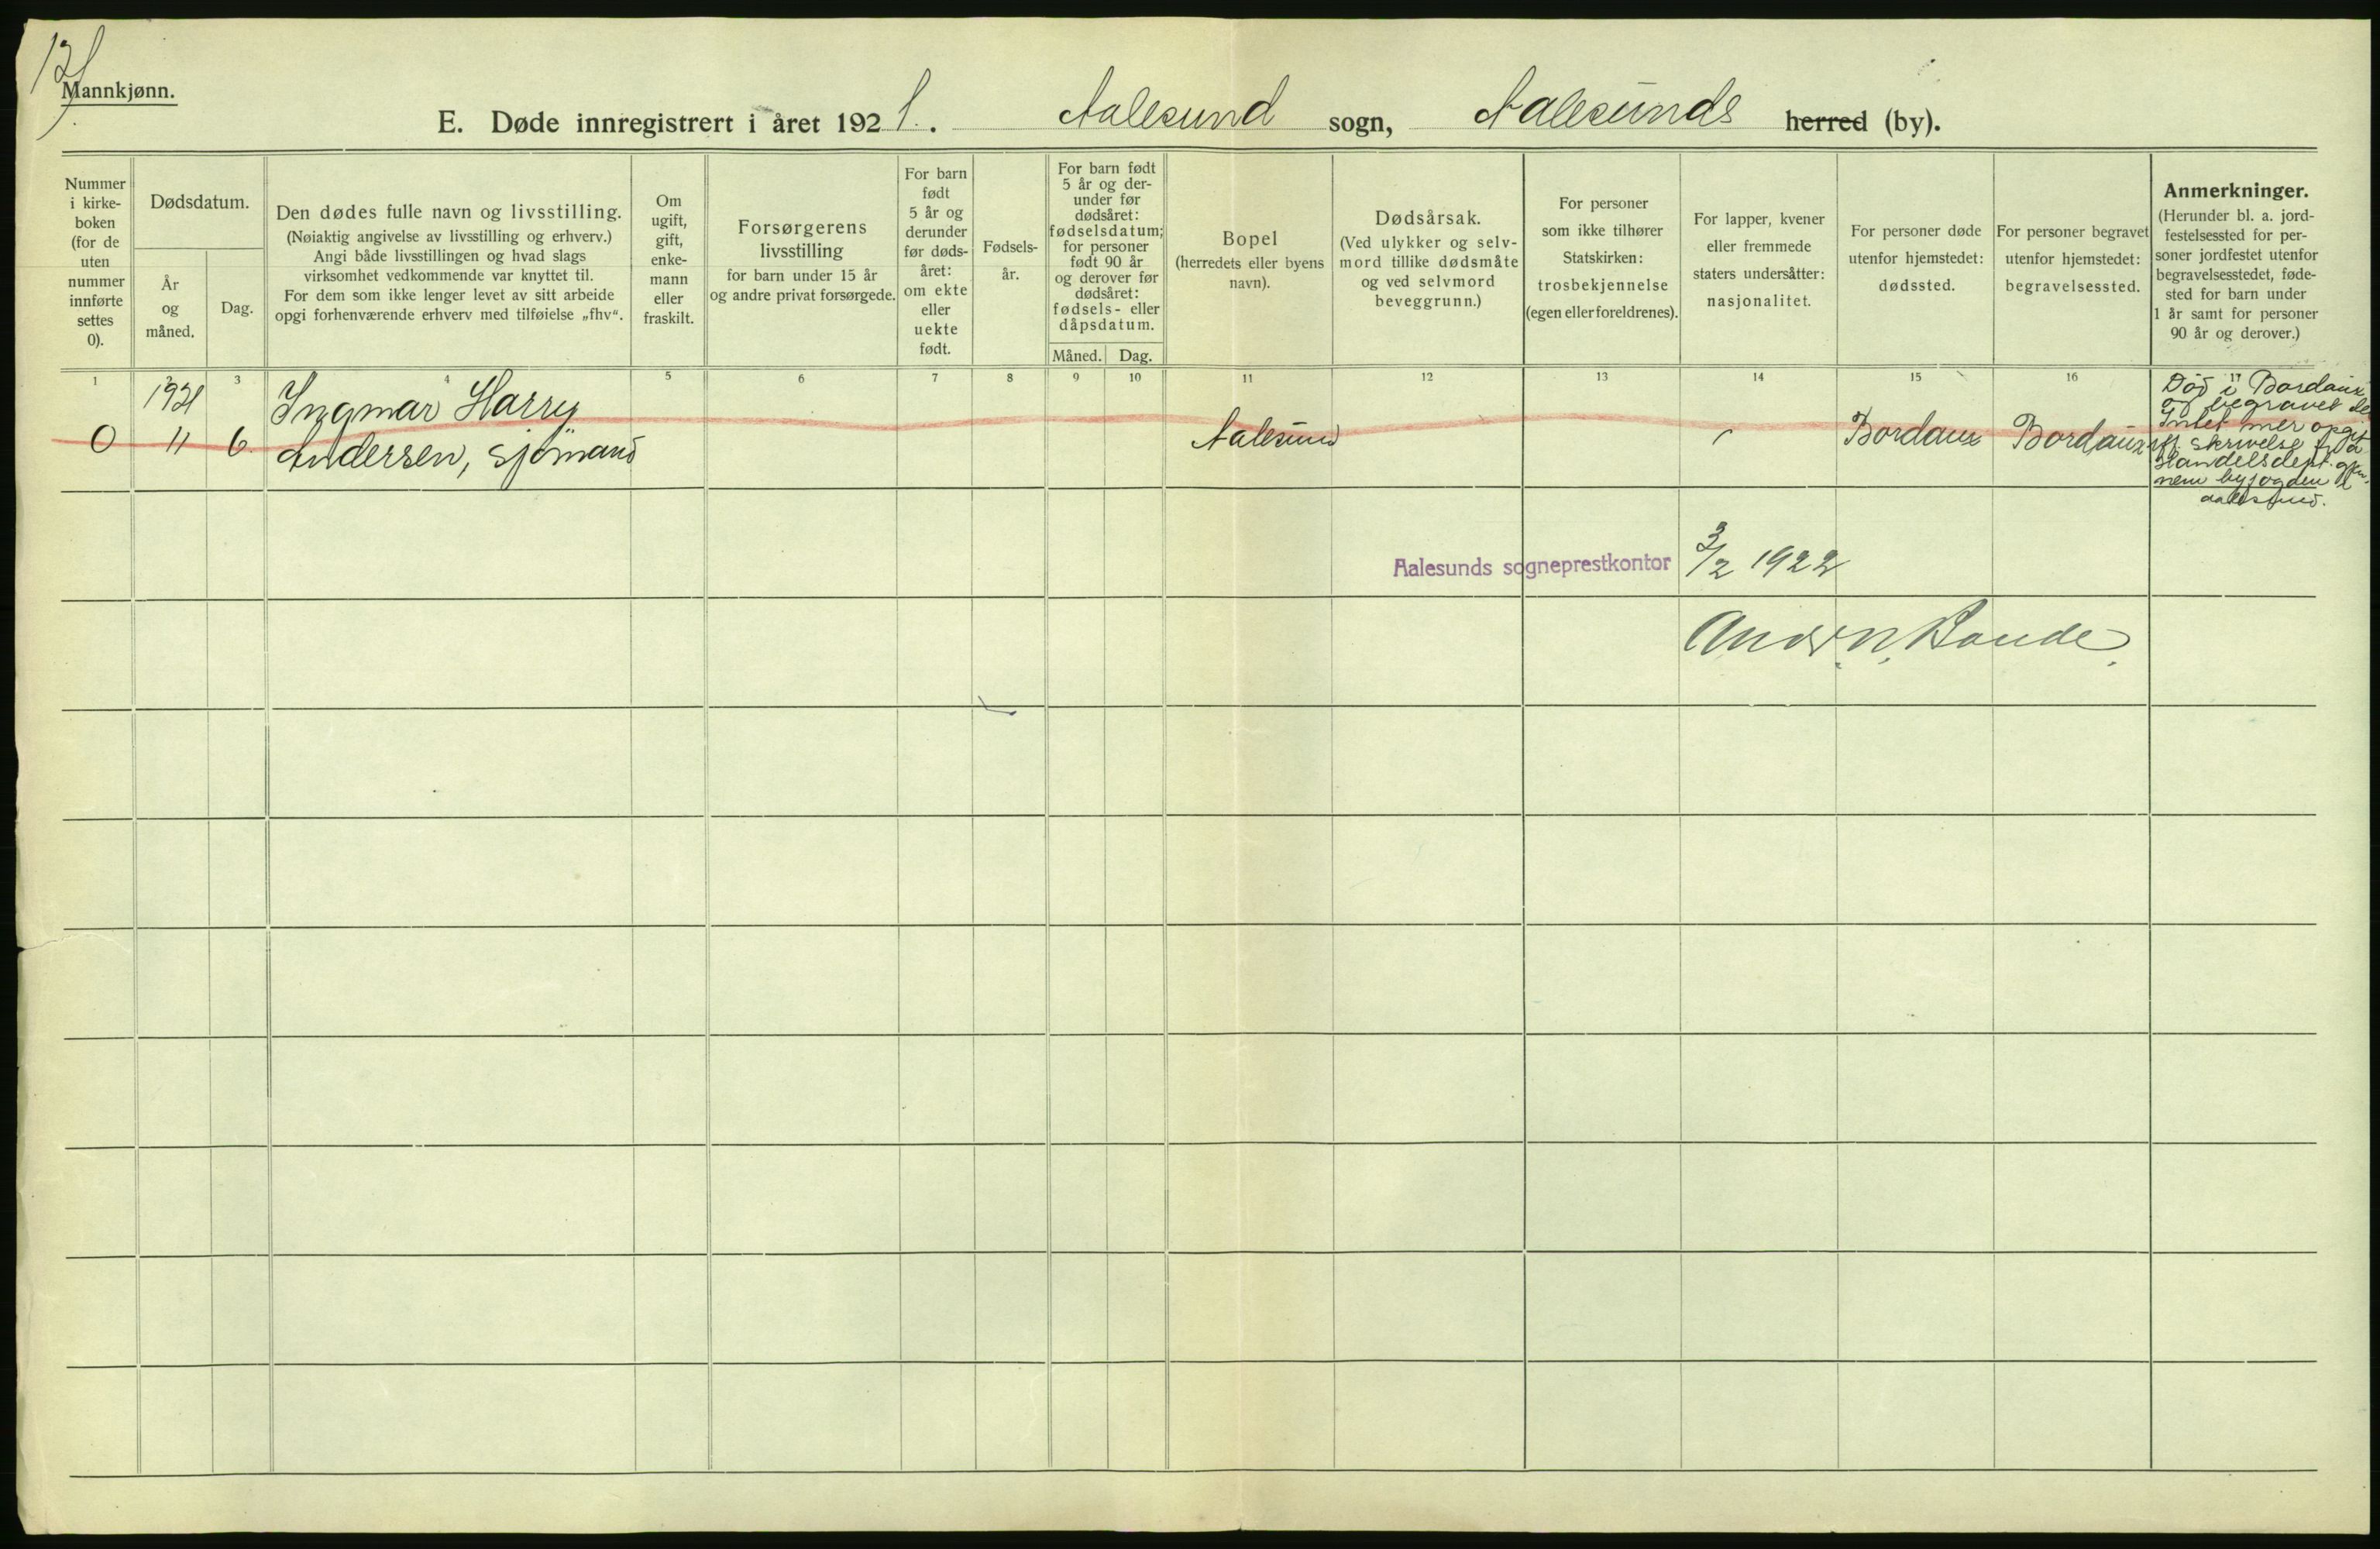 121
Mannkjønn.
E. Døde innregistrert i året 1921. Aalesund sogn, Aalesunds herred (by).
Nummer
i kirke-
boken
(for de
uten
nummer
innførte
settes
0).
Dødsdatum.
År
og
måned.
Dag.
Den dødes fulle navn og livsstilling.
(Nøiaktig angivelse av livsstilling og erhverv.)
Angi både livsstillingen og hvad slags
virksomhet vedkommende var knyttet til.
For dem som ikke lenger levet av sitt arbeide
opgi forhenværende erhverv med tilføielse „fhv“.
Om
ugift,
gift,
enke-
mann
eller
fraskilt.
Forsørgerens
livsstilling
for barn under 15 år
og andre privat forsørgede.
For barn
født
5 år og
derunder
før døds-
året:
om ekte
eller
uekte
født.
Fødsels-
år.
For barn født
5 år og der-
under før
dødsåret:
fødselsdatum;
for personer
født 90 år
og derover før
dødsåret:
fødsels- eller
dåpsdatum.
Måned. Dag.
Bopel
(herredets eller byens
navn).
Dødsårsak.
(Ved ulykker og selv-
mord tillike dødsmåte
og ved selvmord
beveggrunn.)
For personer
som ikke tilhører
Statskirken:
trosbekjennelse
(egen eller foreldrenes).
For lapper, kvener
eller fremmede
staters undersåtter:
nasjonalitet.
For personer døde
utenfor hjemstedet:
dødssted.
For personer begravet
utenfor hjemstedet:
begravelsessted.
Anmerkninger.
(Herunder bl. a. jord-
festelsessted for per-
soner jordfestet utenfor
begravelsesstedet, føde-
sted for barn under
1 år samt for personer
90 år og derover.)
1 2 3 4 5 6 7 8 9 10 11 12 13 14 15 16 17
1921
0 11 6
Ingmar Harry
Andersen, sjömand
Aalesund
Bordaux
Bordaux
Död i Bordaux
og begravet de
Intet mer opgit
ifl. skrivelse fra
Handelsdept. gjen-
nem byfogden i
Aalesund.
Aalesunds sogneprestkontor 3/2 1922
And. N. Bonde.